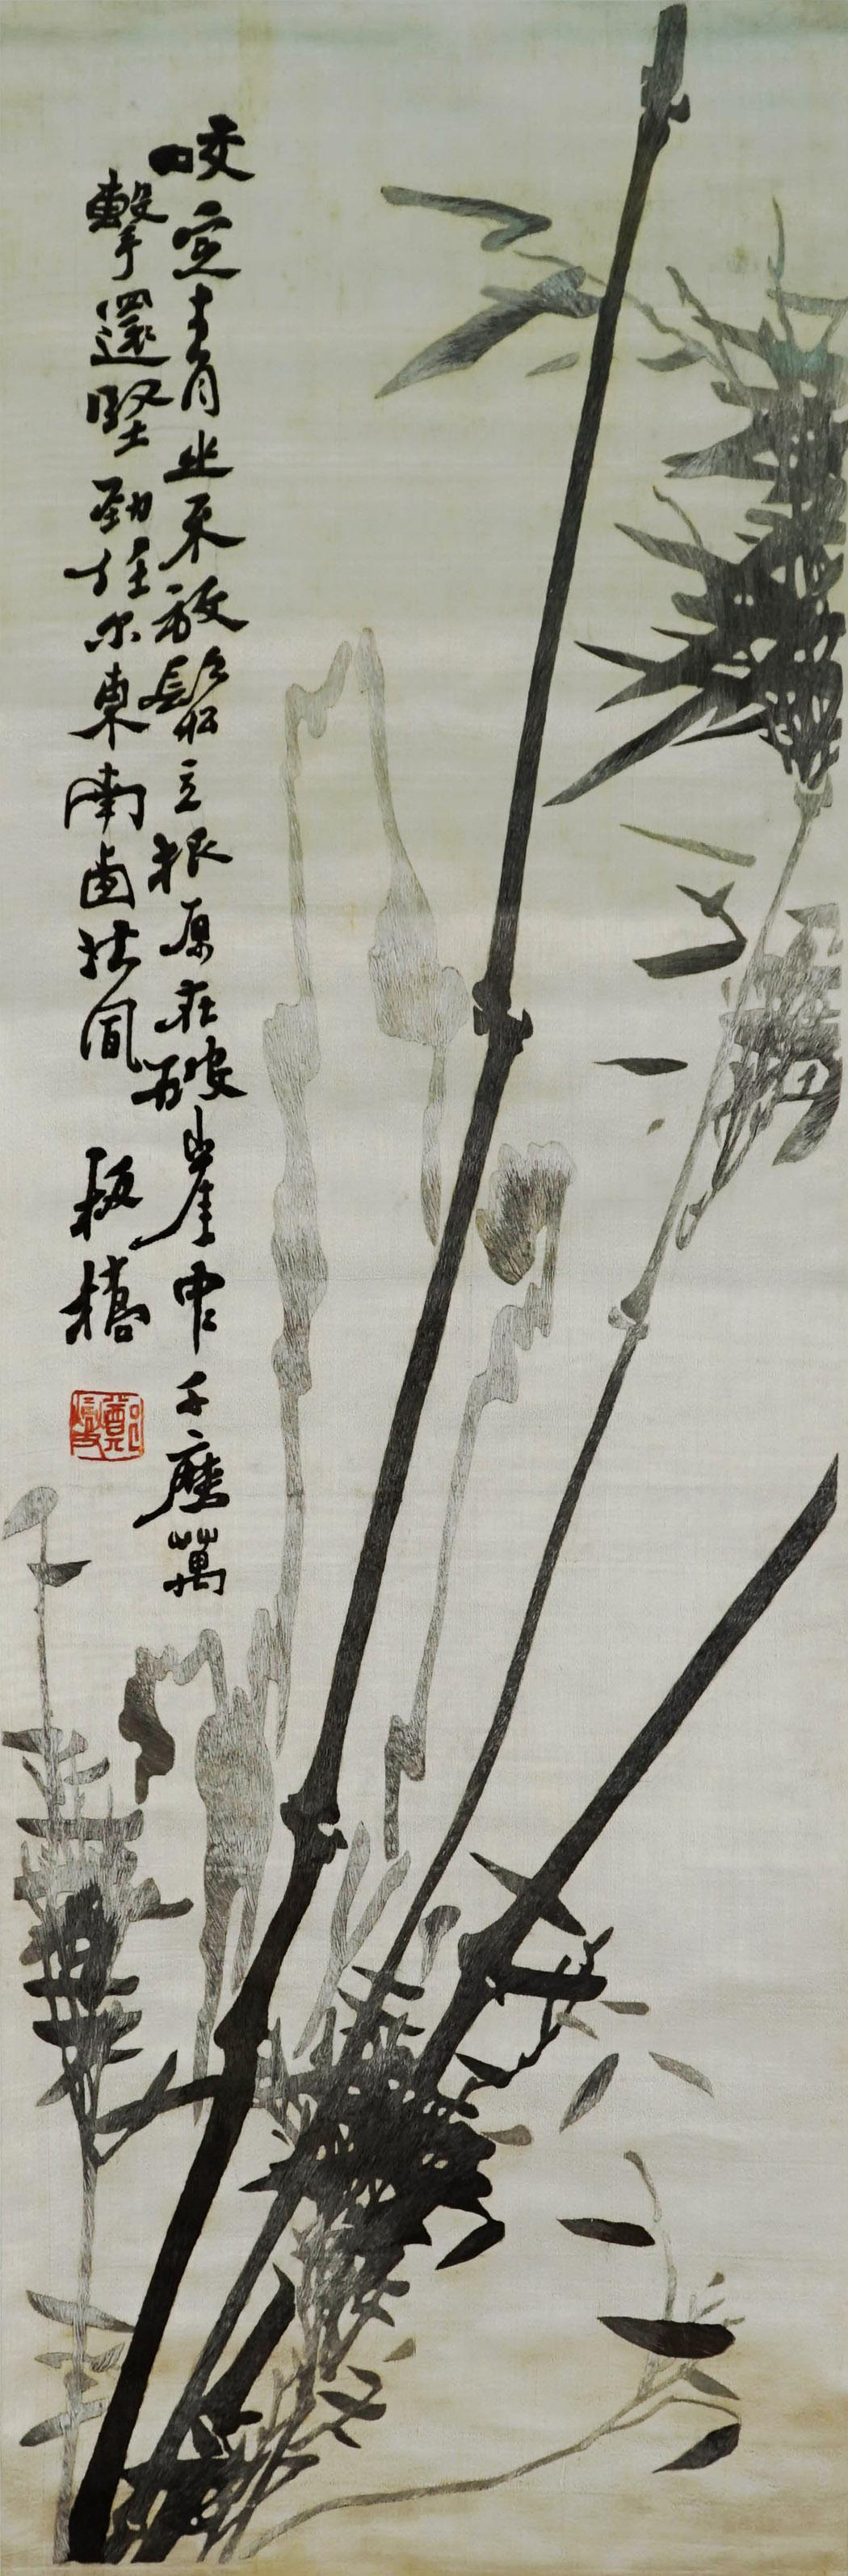 咬定青山不放鬆立根原在破崖中千磨萬
擊還堅勁任尔東南西北風
板橋
鄭燮